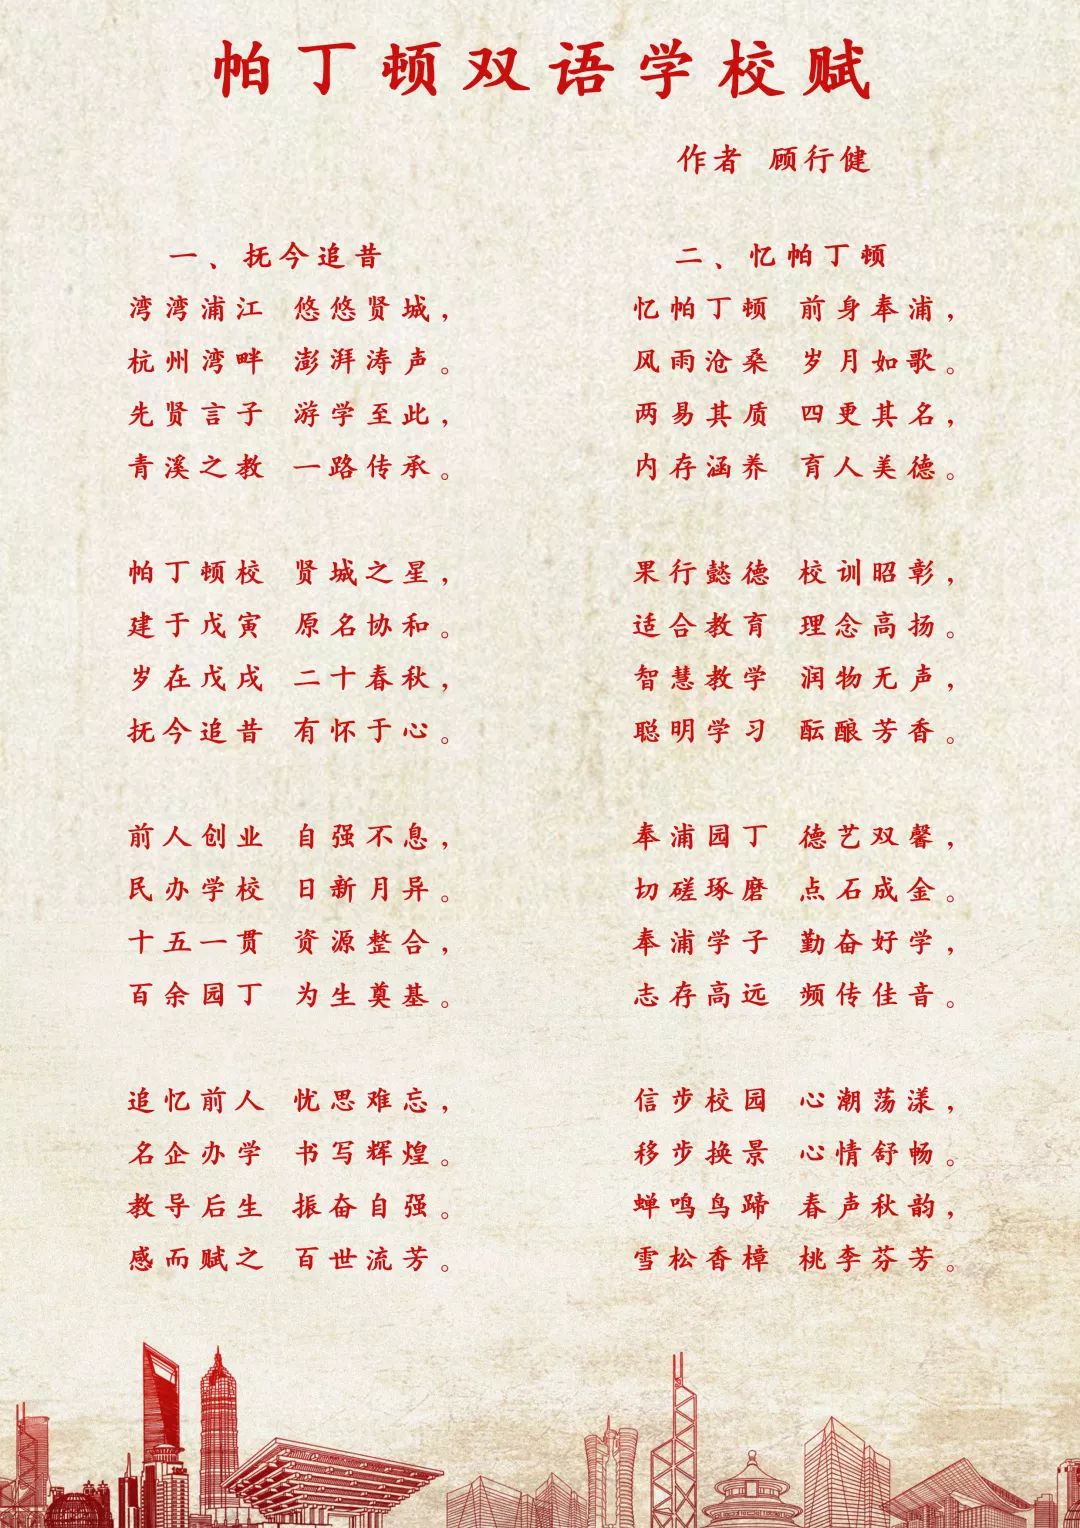 帕丁顿双语学校赋
作者 顾行健
一、抚今追昔
湾湾浦江 悠悠贤城，
杭州湾畔 澎湃涛声。
先贤言子 游学至此，
青溪之教 一路传承。
帕丁顿校 贤城之星，
建于戊寅 原名协和。
岁在戊戌 二十春秋，
抚今追昔 有怀于心。
前人创业 自强不息，
民办学校 日新月异。
十五一贯 资源整合，
百余园丁 为生奠基。
追忆前人 忧思难忘，
名企办学 书写辉煌。
教导后生 振奋自强。
感而赋之 百世流芳。
二、忆帕丁顿
忆帕丁顿 前身奉浦，
风雨沧桑 岁月如歌。
两易其质 四更其名，
内存涵养 育人美德。
果行懿德 校训昭彰，
适合教育 理念高扬。
智慧教学 润物无声，
聪明学习 酝酿芳香。
奉浦园丁 德艺双馨，
切磋琢磨 点石成金。
奉浦学子 勤奋好学，
志存高远 频传佳音。
信步校园 心潮荡漾，
移步换景 心情舒畅。
蝉鸣鸟蹄 春声秋韵，
雪松香樟 桃李芬芳。